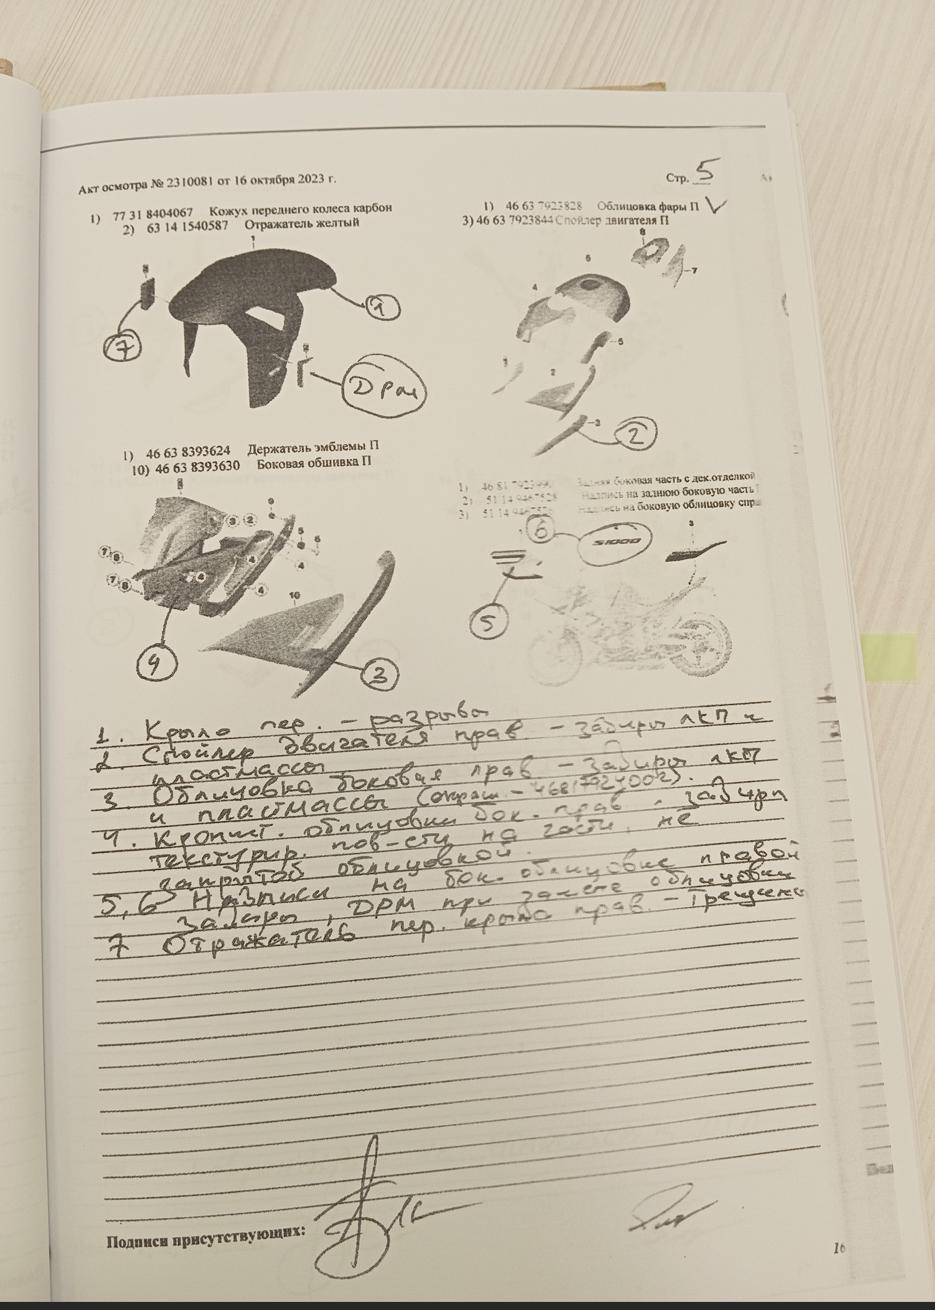 Акт осмотра № 2310081 от 16 октября 2023 г.
Стр. 5
1) 77 31 8404067 Кожух переднего колеса карбон
2) 63 14 1540587 Отражатель желтый
1) 46 63 7923828 Облицовка фары П
3) 46 63 7923844 Спойлер двигателя П
1
2
7
1
2
ДРМ
8
7
6
4
5
2
3
2
1) 46 63 8393624 Держатель эмблемы П
10) 46 63 8393630 Боковая обшивка П
1) 46 81 Задняя боковая часть с дек.отделкой
2) 51 14 Надпись на заднюю боковую часть
3) 51 14 Надпись на боковую облицовку спр
6
S1000
3
5
3 2
7 8
7 8
4
4
4
10
4
3
1. Крыло пер. – разрывы
2. Спойлер двигателя прав – задиры ЛКП и
пластмассы
3. Облицовка боковая прав – задиры ЛКП
и пластмассы
4. Кроншт. облицовки бок. прав. задиры
текстурир. пов-сти на части, не
закрытой облицовкой.
5, 6 Надписи на бок. облицовке правой
задиры, ДРМ при замене облицовки
7 Отражатель пер. крыла прав. – Трещины
Подписи присутствующих:
16